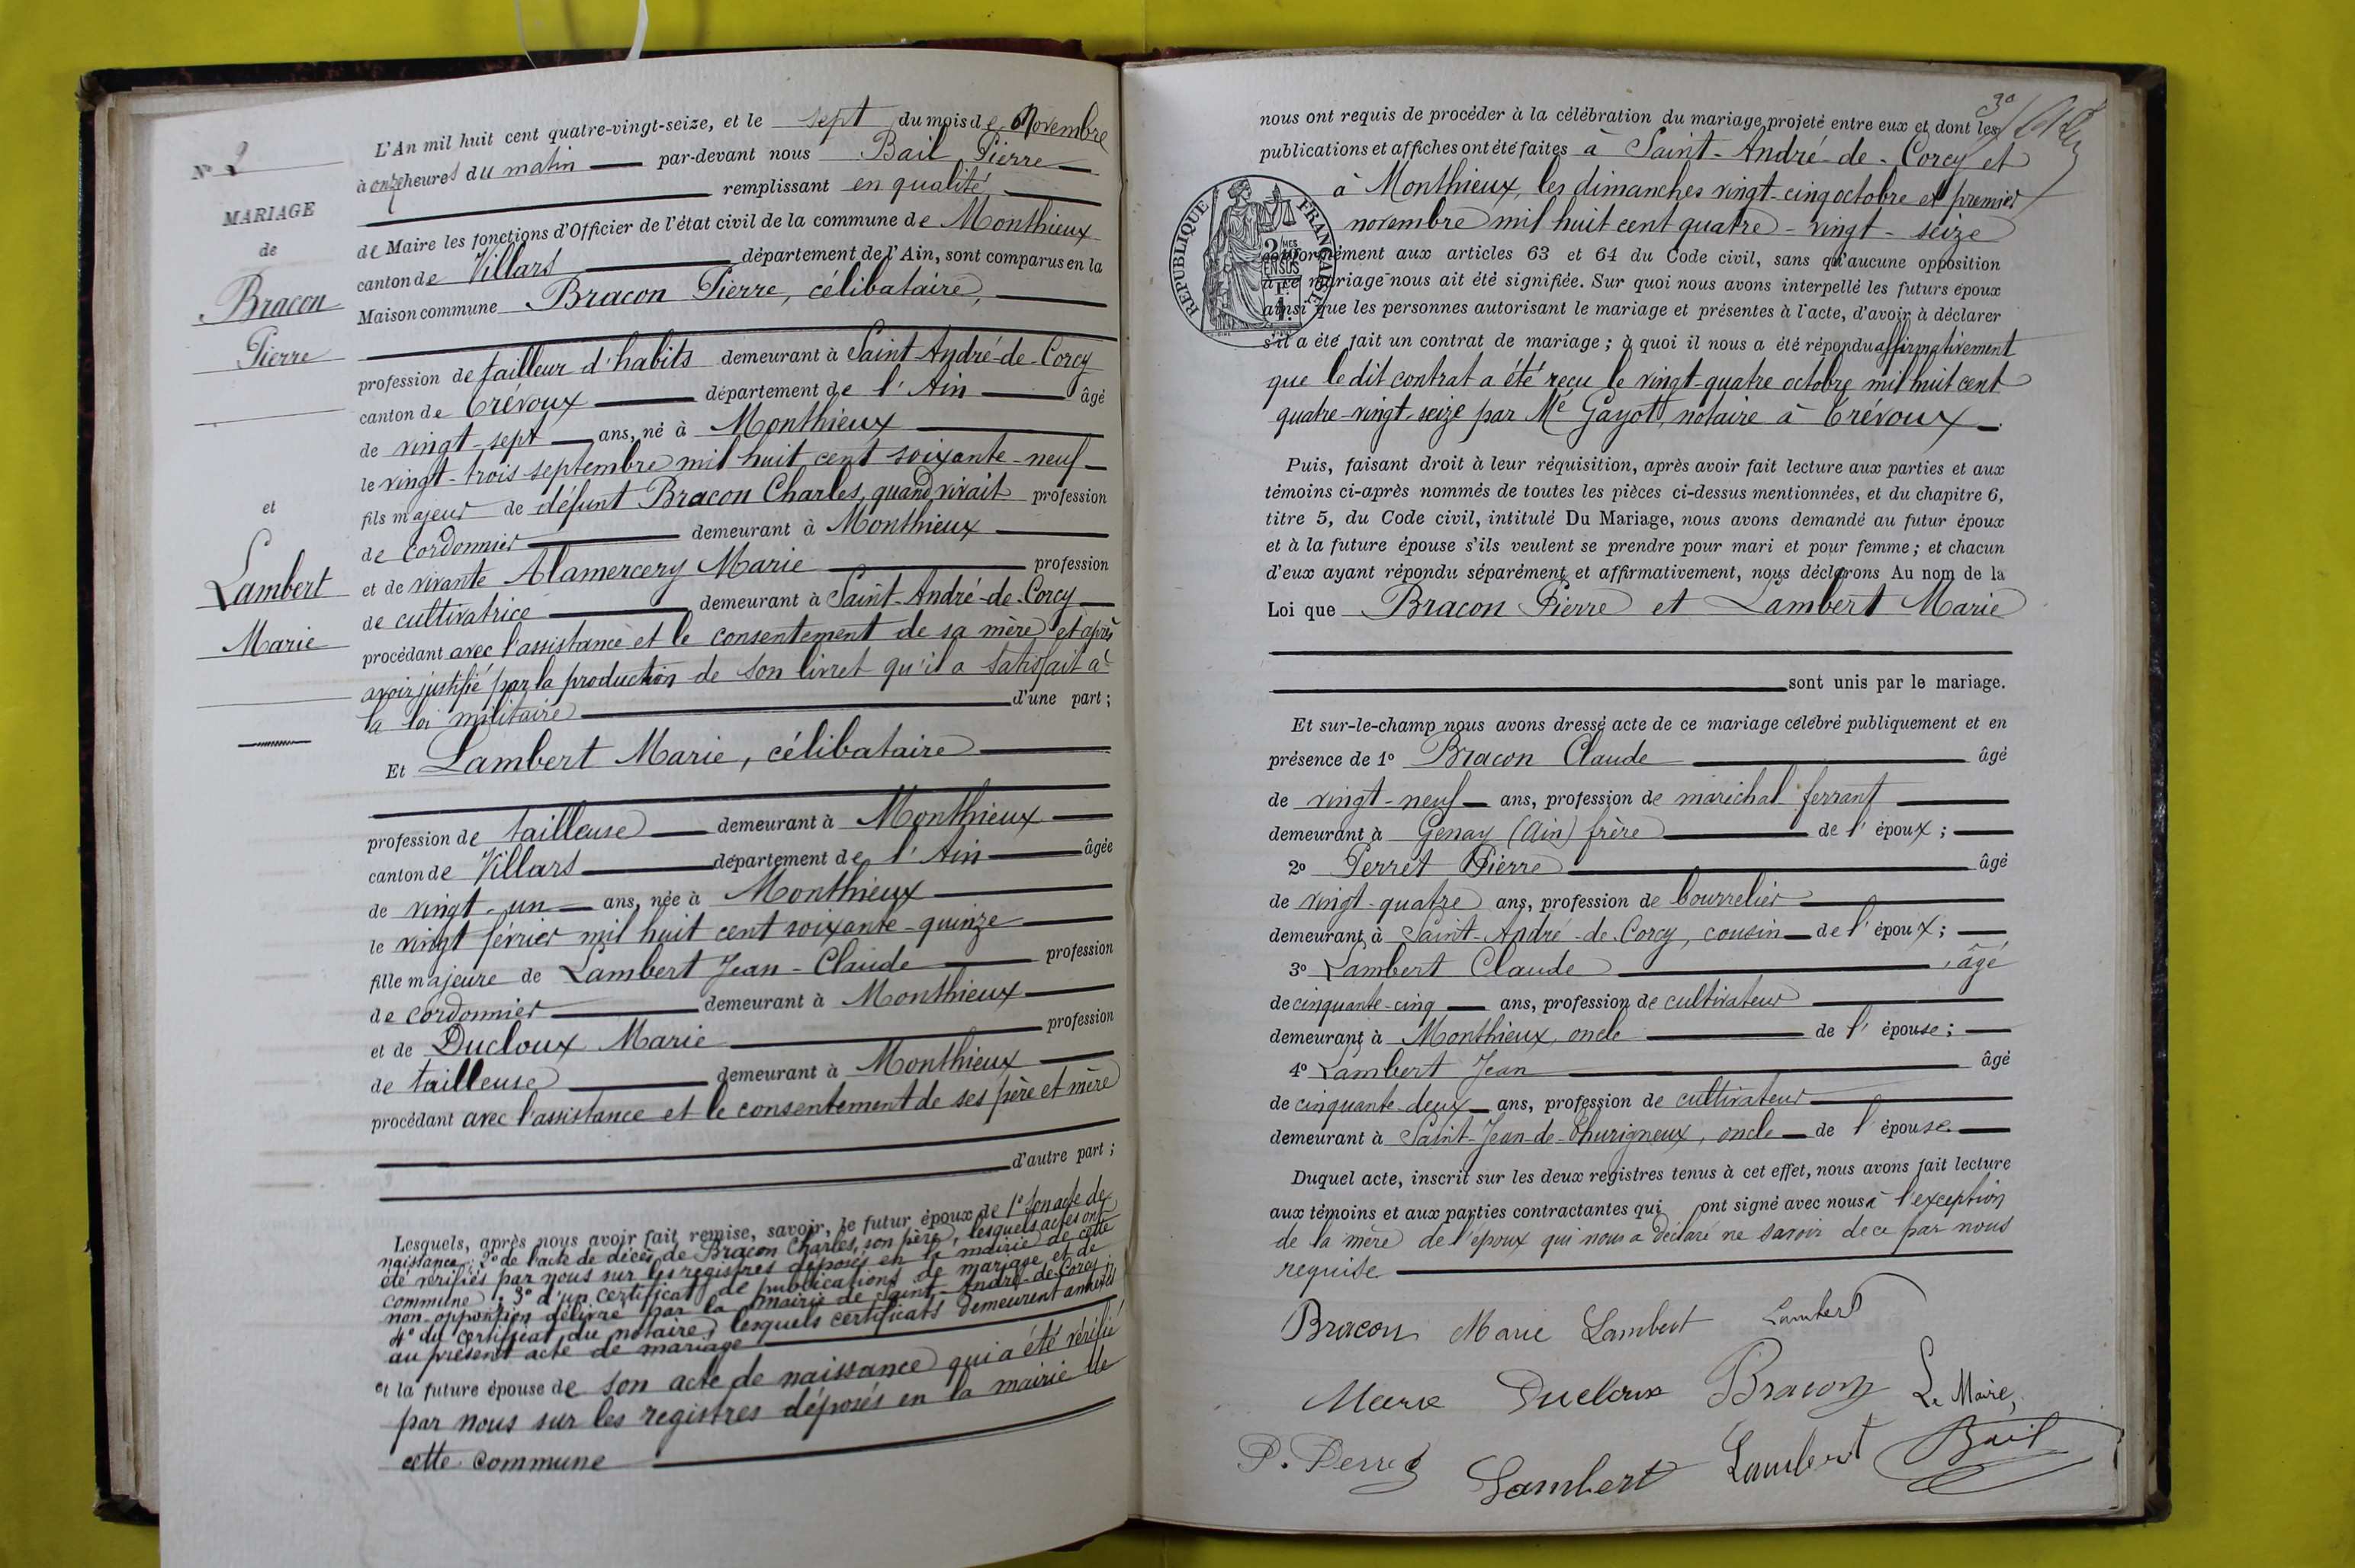 N° 2
MARIAGE
de
Bracon
Pierre
et
Lambert
Marie
L'An mil huit cent quatre-vingt-seize, et le sept du mois de Novembre
à onze heures du matin par-devant nous Bail Pierre
remplissant en qualité
de Maire les fonctions d'Officier de l'état civil de la commune de Monthieux
canton de Villars département de l'Ain, sont comparus en la
Maison commune Bracon Pierre, célibataire,
profession de tailleur d'habits demeurant à Saint-André-de-Corcy
canton de Trévoux département de l'Ain âgé
de vingt-sept ans, né à Monthieux
le vingt-trois septembre mil huit cent soixante-neuf
fils majeur de défunt Bracon Charles, quand vivait profession
de cordonnier demeurant à Monthieux
et de vivante Alamercery Marie profession
de cultivatrice demeurant à Saint-André-de-Corcy
procédant avec l'assistance et le consentement de sa mère et après
avoir justifié par la production de son livret qu'il a satisfait à
la loi militaire d'une part;
Et Lambert Marie, célibataire
profession de tailleuse demeurant à Monthieux
canton de Villars département de l'Ain âgée
de vingt-un ans, née à Monthieux
le vingt février mil huit cent soixante-quinze
fille majeure de Lambert Jean-Claude profession
de cordonnier demeurant à Monthieux
et de Ducloux Marie profession
de tailleuse demeurant à Monthieux
procédant avec l'assistance et le consentement de ses père et mère
d'autre part;
Lesquels, après nous avoir fait remise, savoir, le futur époux de 1° son acte de
naissance; 2° de l'acte de décès de Bracon Charles, son père, lesquels actes ont
été vérifiés par nous sur les registres déposés en la mairie de cette
commune; 3° d'un certificat de publications de mariage et de
non-opposition délivré par la mairie de Saint-André-de-Corcy;
4° du certificat du notaire, lesquels certificats demeurent annexés
au présent acte de mariage
et la future épouse de son acte de naissance qui a été vérifié
par nous sur les registres déposés en la mairie de
cette commune
nous ont requis de procéder à la célébration du mariage projeté entre eux et dont les
publications et affiches ont été faites à Saint-André-de-Corcy et
à Monthieux, les dimanches vingt-cinq octobre et premier
novembre mil huit cent quatre-vingt-seize
conformément aux articles 63 et 64 du Code civil, sans qu'aucune opposition
à ce mariage nous ait été signifiée. Sur quoi nous avons interpellé les futurs époux
ainsi que les personnes autorisant le mariage et présentes à l'acte, d'avoir à déclarer
s'il a été fait un contrat de mariage; à quoi il nous a été répondu affirmativement
que le dit contrat a été reçu le vingt-quatre octobre mil huit cent
quatre-vingt-seize par Me Gayot, notaire à Trévoux
RÉPUBLIQUE FRANÇAISE
Puis, faisant droit à leur réquisition, après avoir fait lecture aux parties et aux
témoins ci-après nommés de toutes les pièces ci-dessus mentionnées, et du chapitre 6,
titre 5, du Code civil, intitulé Du Mariage, nous avons demandé au futur époux
et à la future épouse s'ils veulent se prendre pour mari et pour femme; et chacun
d'eux ayant répondu séparément et affirmativement, nous déclarons Au nom de la
Loi que Bracon Pierre et Lambert Marie
sont unis par le mariage.
Et sur-le-champ nous avons dressé acte de ce mariage célébré publiquement et en
présence de 1° Bracon Claude âgé
de vingt-neuf ans, profession de maréchal ferrant
demeurant à Genay (Ain) frère de l'époux;
2° Perret Pierre âgé
de vingt-quatre ans, profession de bourrelier
demeurant à Saint-André-de-Corcy, cousin de l'époux;
3° Lambert Claude âgé
de cinquante-cinq ans, profession de cultivateur
demeurant à Monthieux, oncle de l'épouse;
4° Lambert Jean âgé
de cinquante-deux ans, profession de cultivateur
demeurant à Saint-Jean-de-Thurigneux, oncle de l'épouse
Duquel acte, inscrit sur les deux registres tenus à cet effet, nous avons fait lecture
aux témoins et aux parties contractantes qui ont signé avec nous à l'exception
de la mère de l'époux qui nous a déclaré ne savoir de ce par nous
requise
Bracon Marie Lambert Lambert
Marie Ducloux Bracon Le Maire,
P. Perret Lambert Lambert Bail